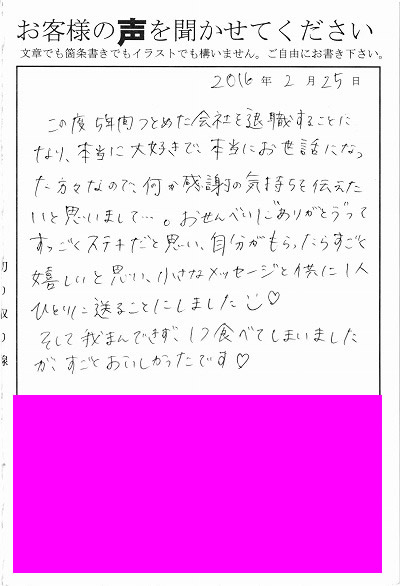 お客様の声を聞かせてください
文章でも箇条書きでもイラストでも構いません。ご自由にお書き下さい。
2016年2月25日
この度5年間つとめた会社を退職することに
なり、本当に大好きで、本当にお世話になっ
た方々なので、何か感謝の気持ちを伝えた
いと思いまして…。おせんべいに"ありがとう"って
すっごくステキだと思い、自分がもらったらすごく
嬉しいと思い、小さなメッセージと供に1人
ひとりに送ることにしました♡
そして我まんできず、1つ食べてしまいました
が、すごくおいしかったです♡